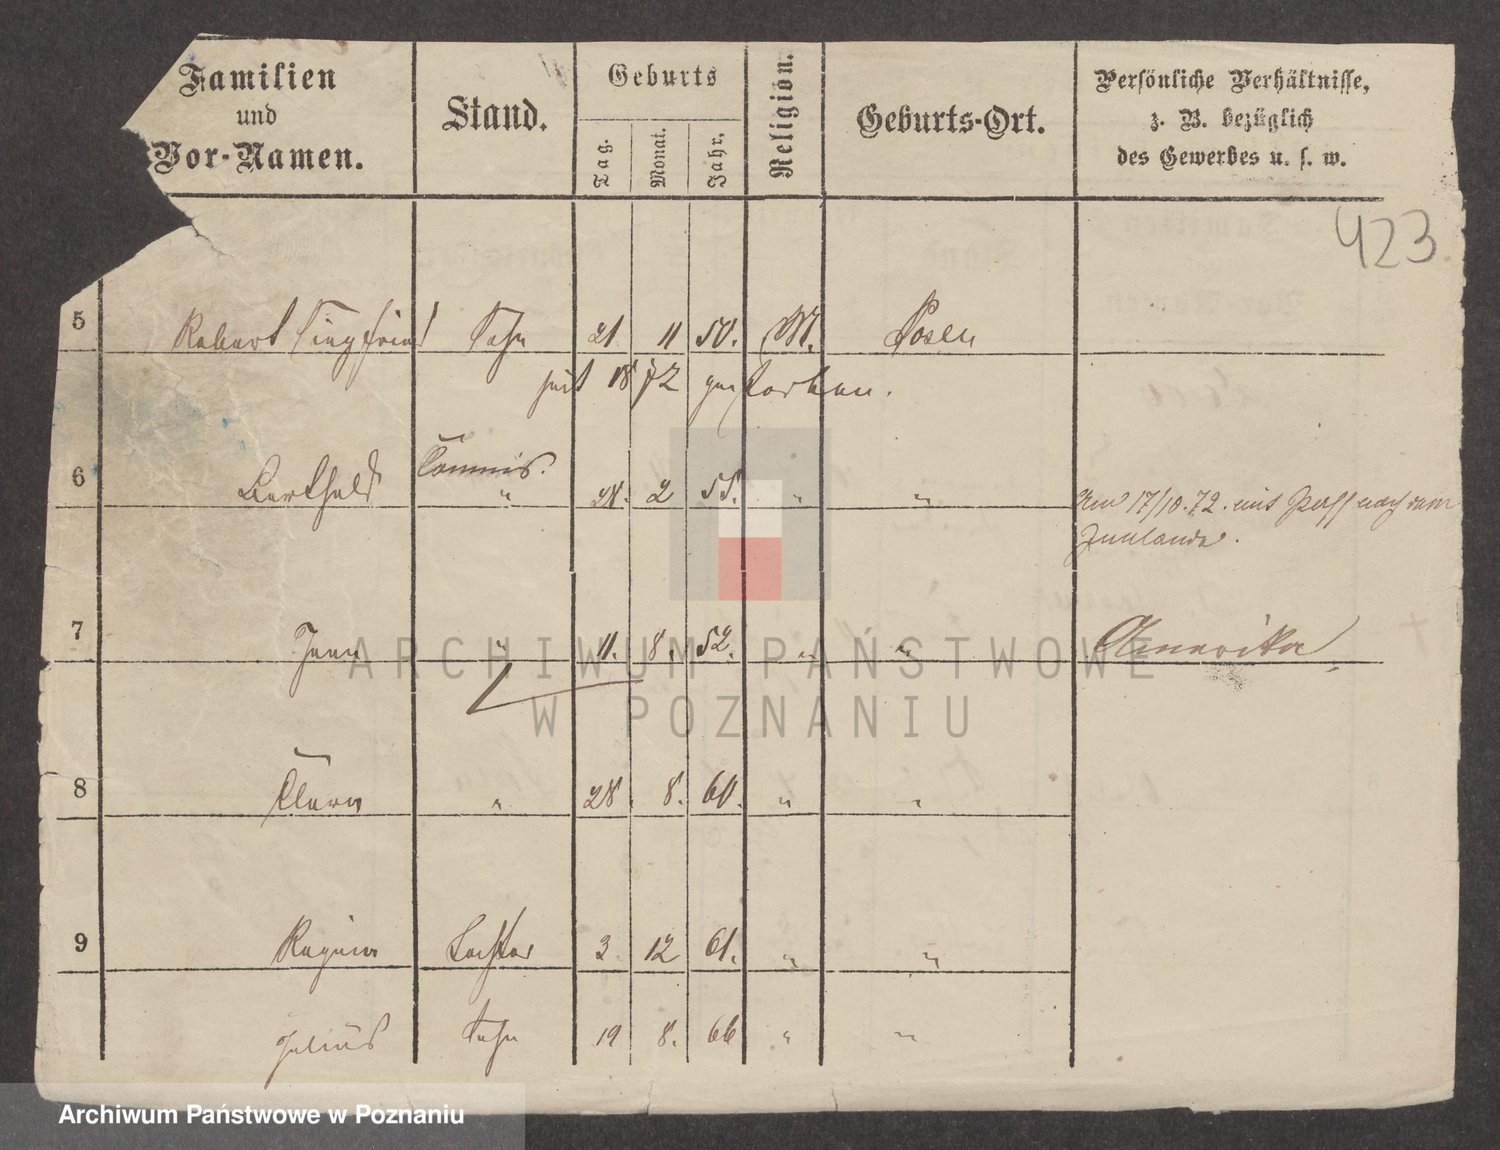 Familien
und
Vor-Namen.
Stand.
Geburts
Tag.
Monat.
Jahr.
Religion.
Geburts-Ort.
Persönliche Verhältnisse,
z. B. bezüglich
des Gewerbes u. s. w.
423
5 Robert Siegfried Sohn 21 11 50. M. Posen
seit 1872 gestorben.
Commis.
6 Berthold " 28. 2 55. " "
Am 17/10.72. mit Paß nach dem
7 " 11. 8. 52. " " Amerika
8 Clara " 28. 8. 60. " "
9 Regina Tochter 3 12 61. " "
Julius Sohn 19 8. 66 " "
ARCHIWUM PAŃSTWOWE
W POZNANIU
Archiwum Państwowe w Poznaniu